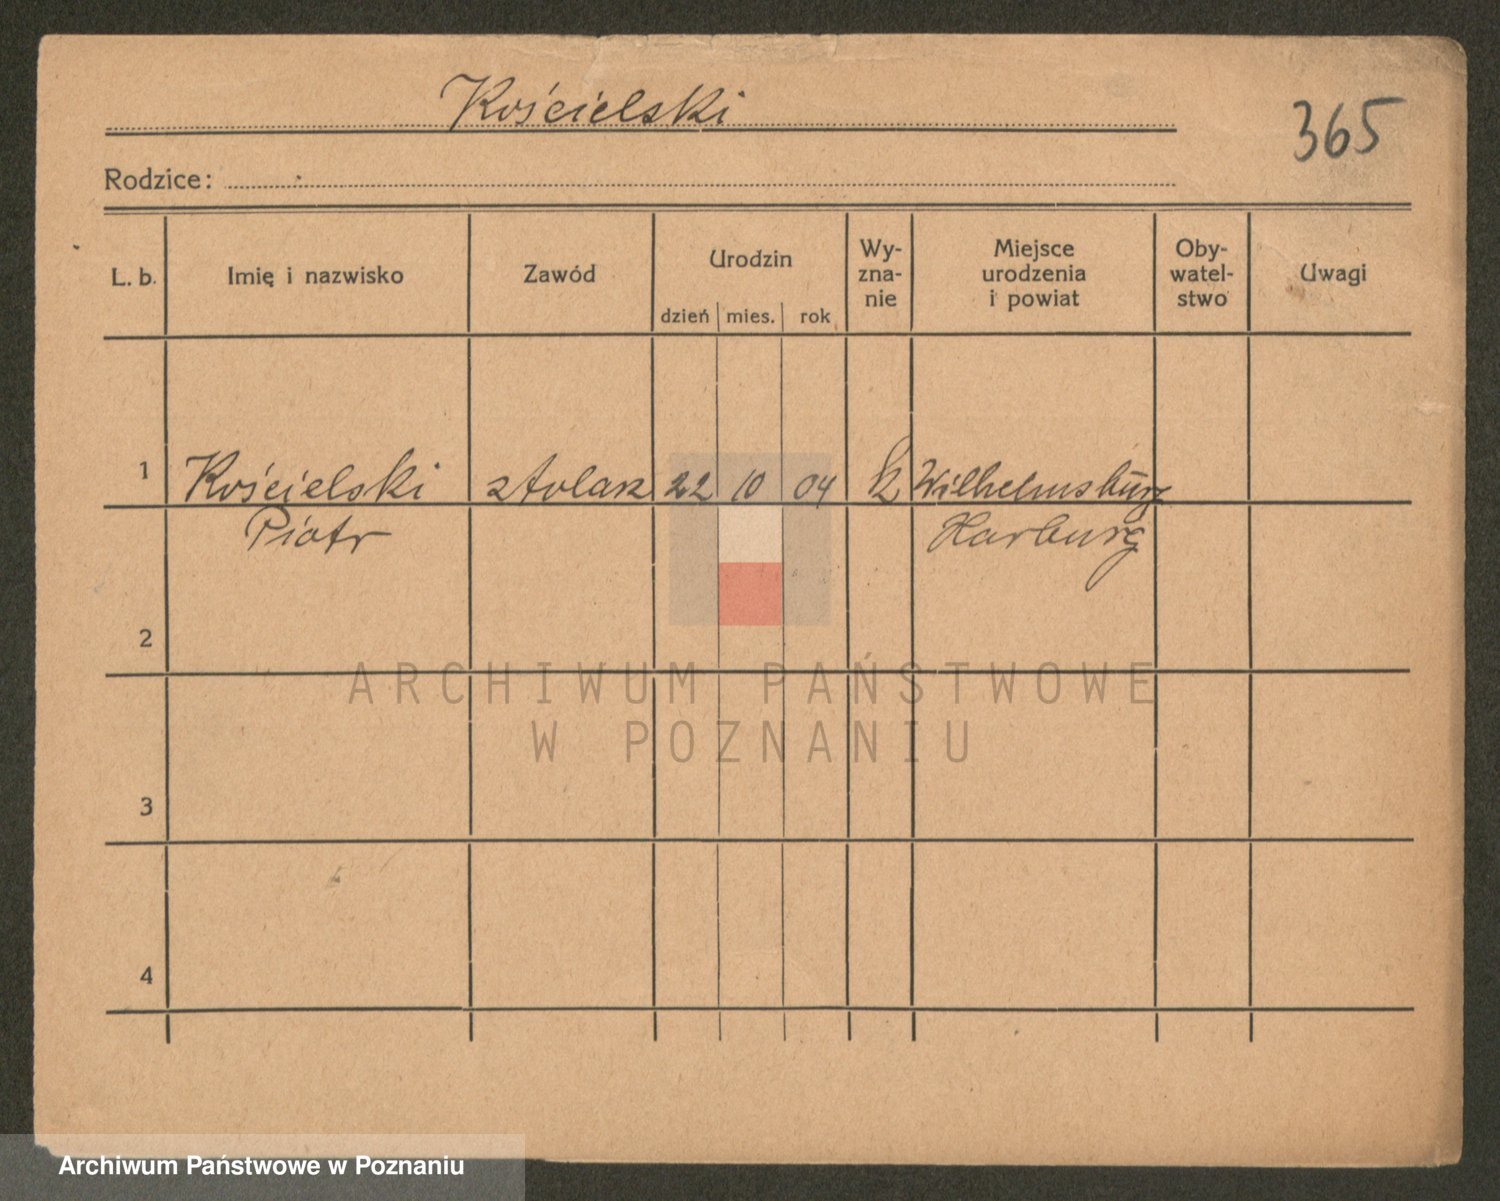 Kościelski
365
Rodzice:
L. b.
Imię i nazwisko
Zawód
Urodzin
dzień mies. rok
Wy-
zna-
nie
Miejsce
urodzenia
i powiat
Oby-
watel-
stwo
Uwagi
1 Kościelski stolarz 22 10 04 k Wilhelmsburg
Piotr Harburg
2
3
4
ARCHIWUM PAŃSTWOWE
W POZNANIU
Archiwum Państwowe w Poznaniu